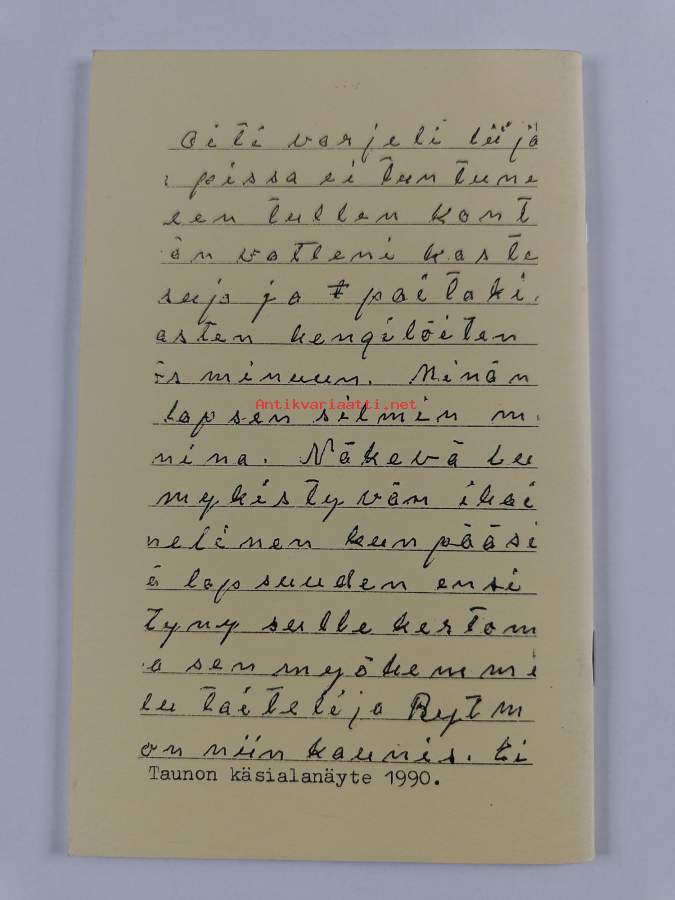 äiti varjeli lii jä
pissa ei tuntune
een tullen kont
än vatteni kaste
suja ja paitaki
asten kengilöiten
ös minuun. Minän
lapsen silmin m
Antikvariaatti.net
nina. Näkevä Lu
mykistyvän ikäi
nelinen kun pääsi
ä lapsuuden ensi
tyny sulle kertom
a sen myökemmi
lu taiteilija Rytm
on niin kaunis. Ei
Taunon käsialanäyte 1990.